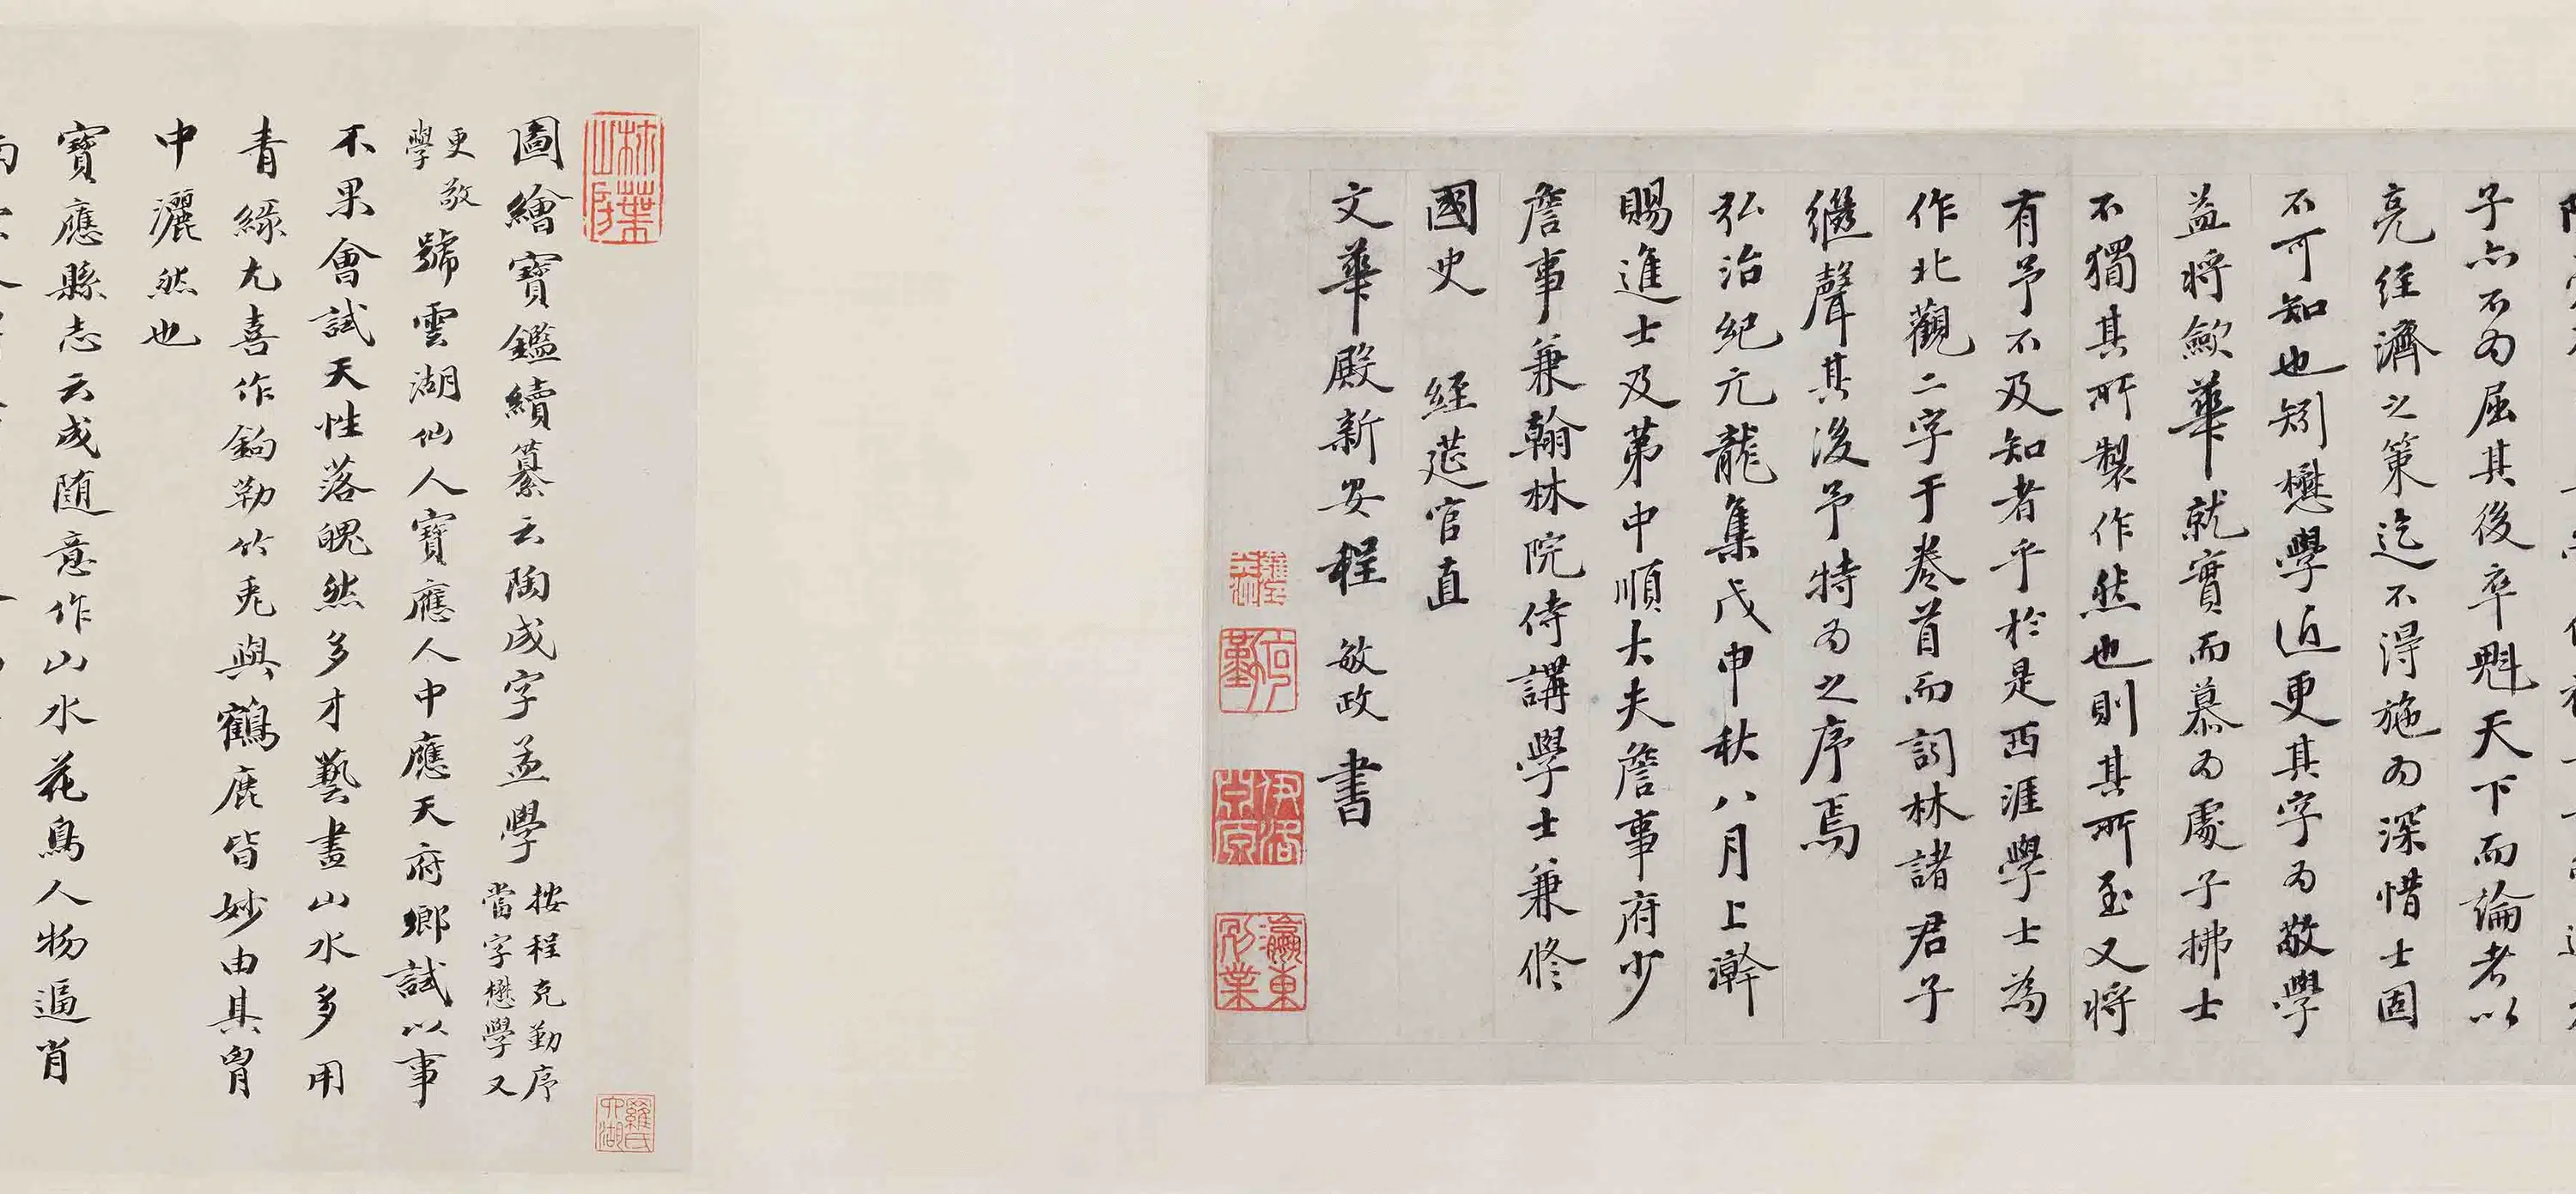 子亦不为屈其後卒魁天下而論者以
亮經濟之策迄不得施为深惜士固
不可知也矧懋學近更其字为敬學
益将歛華就實而慕为處子拂士
不獨其所製作然也則其所至又将
有予不及知者乎於是西涯學士為
作北觀二字于卷首而詞林諸君子
繼聲其後予特为之序焉
弘治紀亢龍集戊申秋八月上澣
賜進士及第中順大夫詹事府少
詹事兼翰林院侍講學士兼修
國史 經莚官直
文華殿新安程敏政書
伊洛
瀛東別業
林葉山房
圖繪寶鑑續纂云陶成字孟學
按程克勤序
當字懋學又
更敬
學
號雲湖仙人寶應人中應天府鄉試以事
不果會試天性落魄然多才藝畫山水多用
青綠尢喜作鉤勒竹兎與鶴鹿皆妙由其胷
中灑然也
寶應縣志云成随意作山水花鳥人物逼肖
羅氏六湖